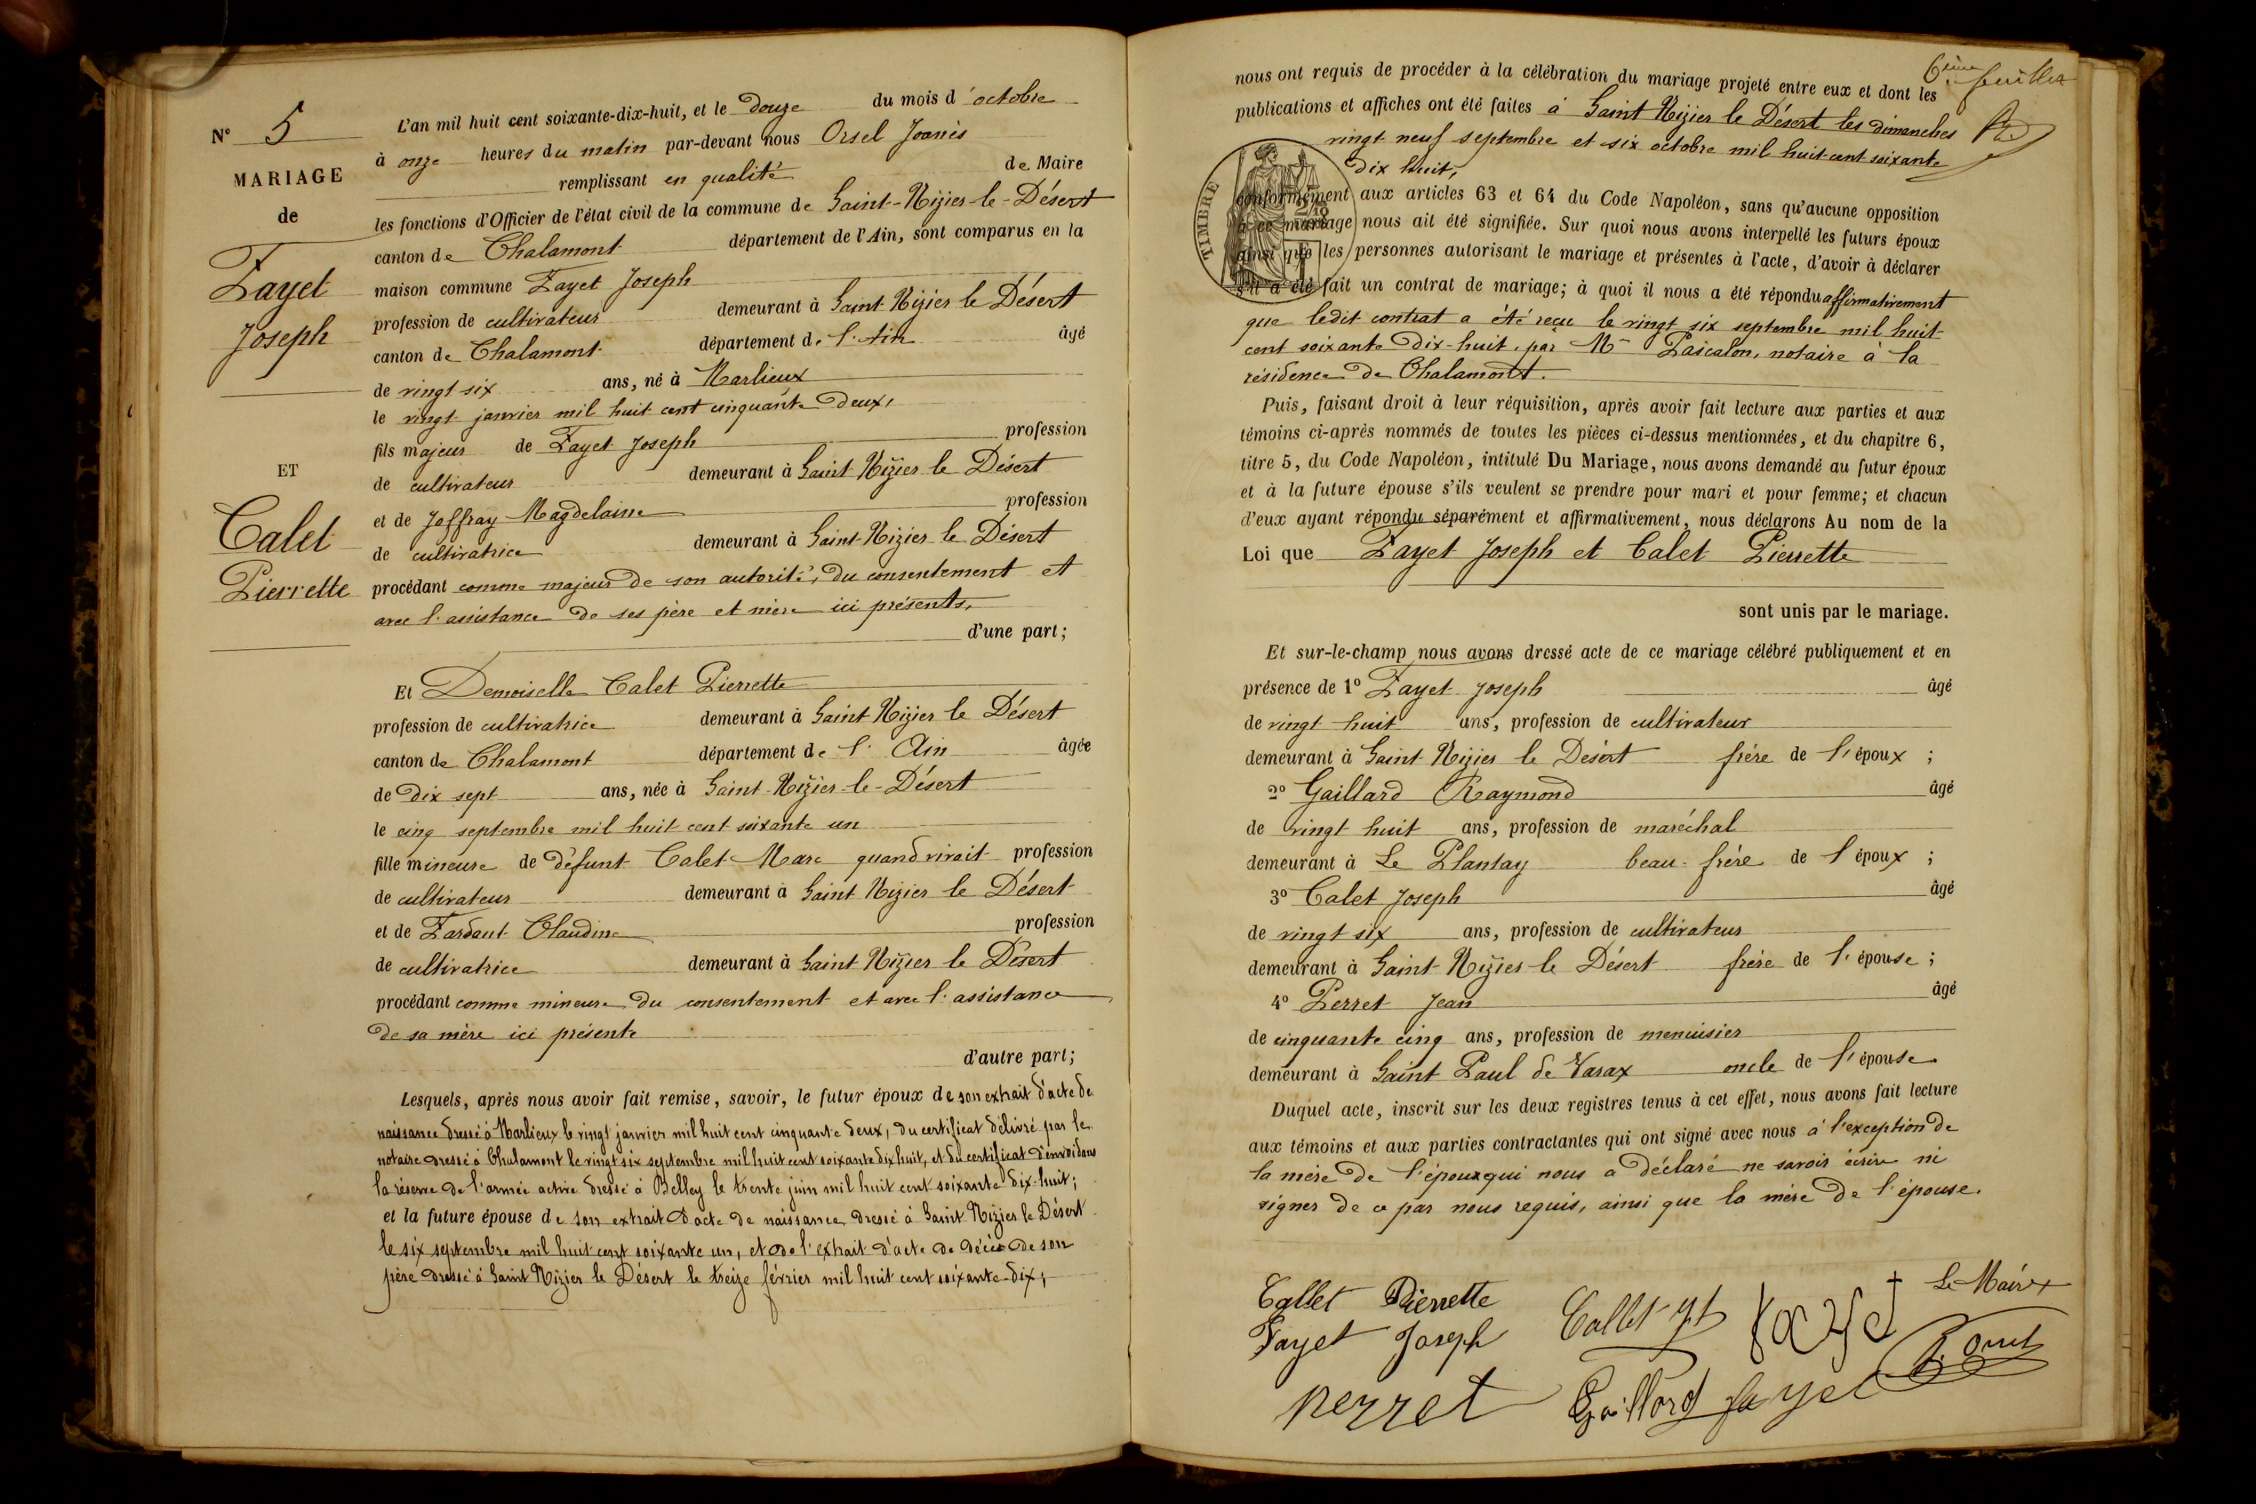 N° 5
MARIAGE
de
Fayet
Joseph
ET
Calet
Pierrette
L'an mil huit cent soixante-dix-huit, et le douze du mois d'octobre
à onze heures du matin par-devant nous Orsel Joanès
remplissant en qualité de Maire
les fonctions d'Officier de l'état civil de la commune de Saint-Nizier-le-Désert
canton de Chalamont département de l'Ain, sont comparus en la
maison commune Fayet Joseph
profession de cultivateur demeurant à Saint Nizier le Désert
canton de Chalamont département de l'Ain âgé
de vingt six ans, né à Marlieux
le vingt janvier mil huit cent cinquante deux,
fils majeur de Fayet Joseph profession
de cultivateur demeurant à Saint Nizier le Désert
et de Joffray Magdelaine profession
de cultivatrice demeurant à Saint-Nizier le Désert
procédant comme majeur de son autorité, du consentement et
avec l'assistance de ses père et mère ici présents,
d'une part;
Et Demoiselle Calet Pierrette
profession de cultivatrice demeurant à Saint Nizier le Désert
canton de Chalamont département de l'Ain âgée
de dix sept ans, née à Saint-Nizier-le-Désert
le cinq septembre mil huit cent soixante un
fille mineure de défunt Calet Marc quand vivait profession
de cultivateur demeurant à Saint Nizier le Désert
et de Fardaut Claudine profession
de cultivatrice demeurant à Saint Nizier le Désert
procédant comme mineure du consentement et avec l'assistance
de sa mère ici présente
d'autre part;
Lesquels, après nous avoir fait remise, savoir, le futur époux de son extrait d'acte de
naissance dressé à Marlieux le vingt janvier mil huit cent cinquante deux, du certificat délivré par le
notaire dressé à Chalamont le vingt six septembre mil huit cent soixante dix huit, et du certificat d'envoi dans
la réserve de l'armée active dressé à Belley le trente juin mil huit cent soixante dix-huit;
et la future épouse de son extrait d'acte de naissance dressé à Saint Nizier le Désert
le six septembre mil huit cent soixante un, et de l'extrait d'acte de décès de son
père dressé à Saint Nizier le Désert le treize février mil huit cent soixante-dix,
6ème feuillet
nous ont requis de procéder à la célébration du mariage projeté entre eux et dont les
publications et affiches ont été faites à Saint Nizier le Désert les dimanches
vingt neuf septembre et six octobre mil huit cent soixante
dix huit,
TIMBRE
conformément aux articles 63 et 64 du Code Napoléon, sans qu'aucune opposition
à ce mariage nous ait été signifiée. Sur quoi nous avons interpellé les futurs époux
ainsi que les personnes autorisant le mariage et présentes à l'acte, d'avoir à déclarer
s'il a été fait un contrat de mariage; à quoi il nous a été répondu affirmativement
que ledit contrat a été reçu le vingt six septembre mil huit
cent soixante dix-huit, par Me Pascalon, notaire à la
résidence de Chalamont.
Puis, faisant droit à leur réquisition, après avoir fait lecture aux parties et aux
témoins ci-après nommés de toutes les pièces ci-dessus mentionnées, et du chapitre 6,
titre 5, du Code Napoléon, intitulé Du Mariage, nous avons demandé au futur époux
et à la future épouse s'ils veulent se prendre pour mari et pour femme; et chacun
d'eux ayant répondu séparément et affirmativement, nous déclarons Au nom de la
Loi que Fayet Joseph et Calet Pierrette
sont unis par le mariage.
Et sur-le-champ nous avons dressé acte de ce mariage célébré publiquement et en
présence de 1° Fayet Joseph âgé
de vingt huit ans, profession de cultivateur
demeurant à Saint Nizier le Desért frère de l'époux ;
2° Gaillard Raymond âgé
de vingt huit ans, profession de maréchal
demeurant à Le Plantay beau-frère de l'époux ;
3° Calet Joseph âgé
de vingt six ans, profession de cultivateur
demeurant à Saint Nizier le Désert frère de l'épouse ;
4° Perret Jean âgé
de cinquante cinq ans, profession de menuisier
demeurant à Saint Paul de Varax oncle de l'épouse
Duquel acte, inscrit sur les deux registres tenus à cet effet, nous avons fait lecture
aux témoins et aux parties contractantes qui ont signé avec nous à l'exception de
la mère de l'époux qui nous a déclaré ne savoir écrire ni
signer de ce par nous requis, ainsi que la mère de l'épouse.
Le Maire
Callet Pierrette
Fayet Joseph
Fayet
Perret
Gaillard
fayet